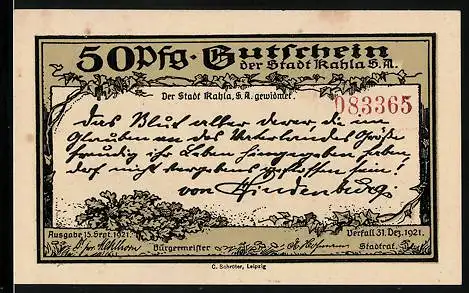 50 Pfg. Gutschein
der Stadt Kahla S.A.
Der Stadt Kahla, S.A. gewidmet.
083365
Das Blut aller derer, die im
Glauben an des Vaterlandes Größe
freudig ihr Leben hingegeben haben,
darf nicht vergebens geflossen sein!
von Hindenburg.
Ausgabe 15. Sept. 1921.
Verfall 31. Dez. 1921.
Bürgermeister
Stadtrat.
C. Schröter, Leipzig